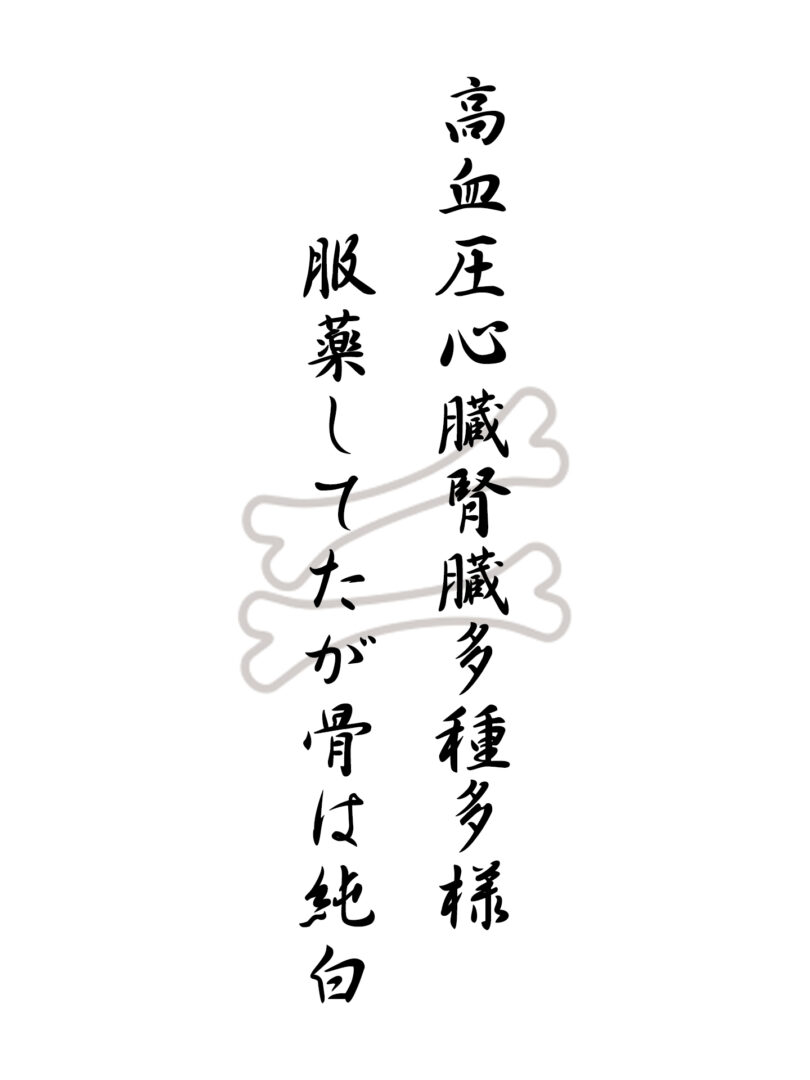 高血圧心臓腎臓多種多様
服薬してたが骨は純白